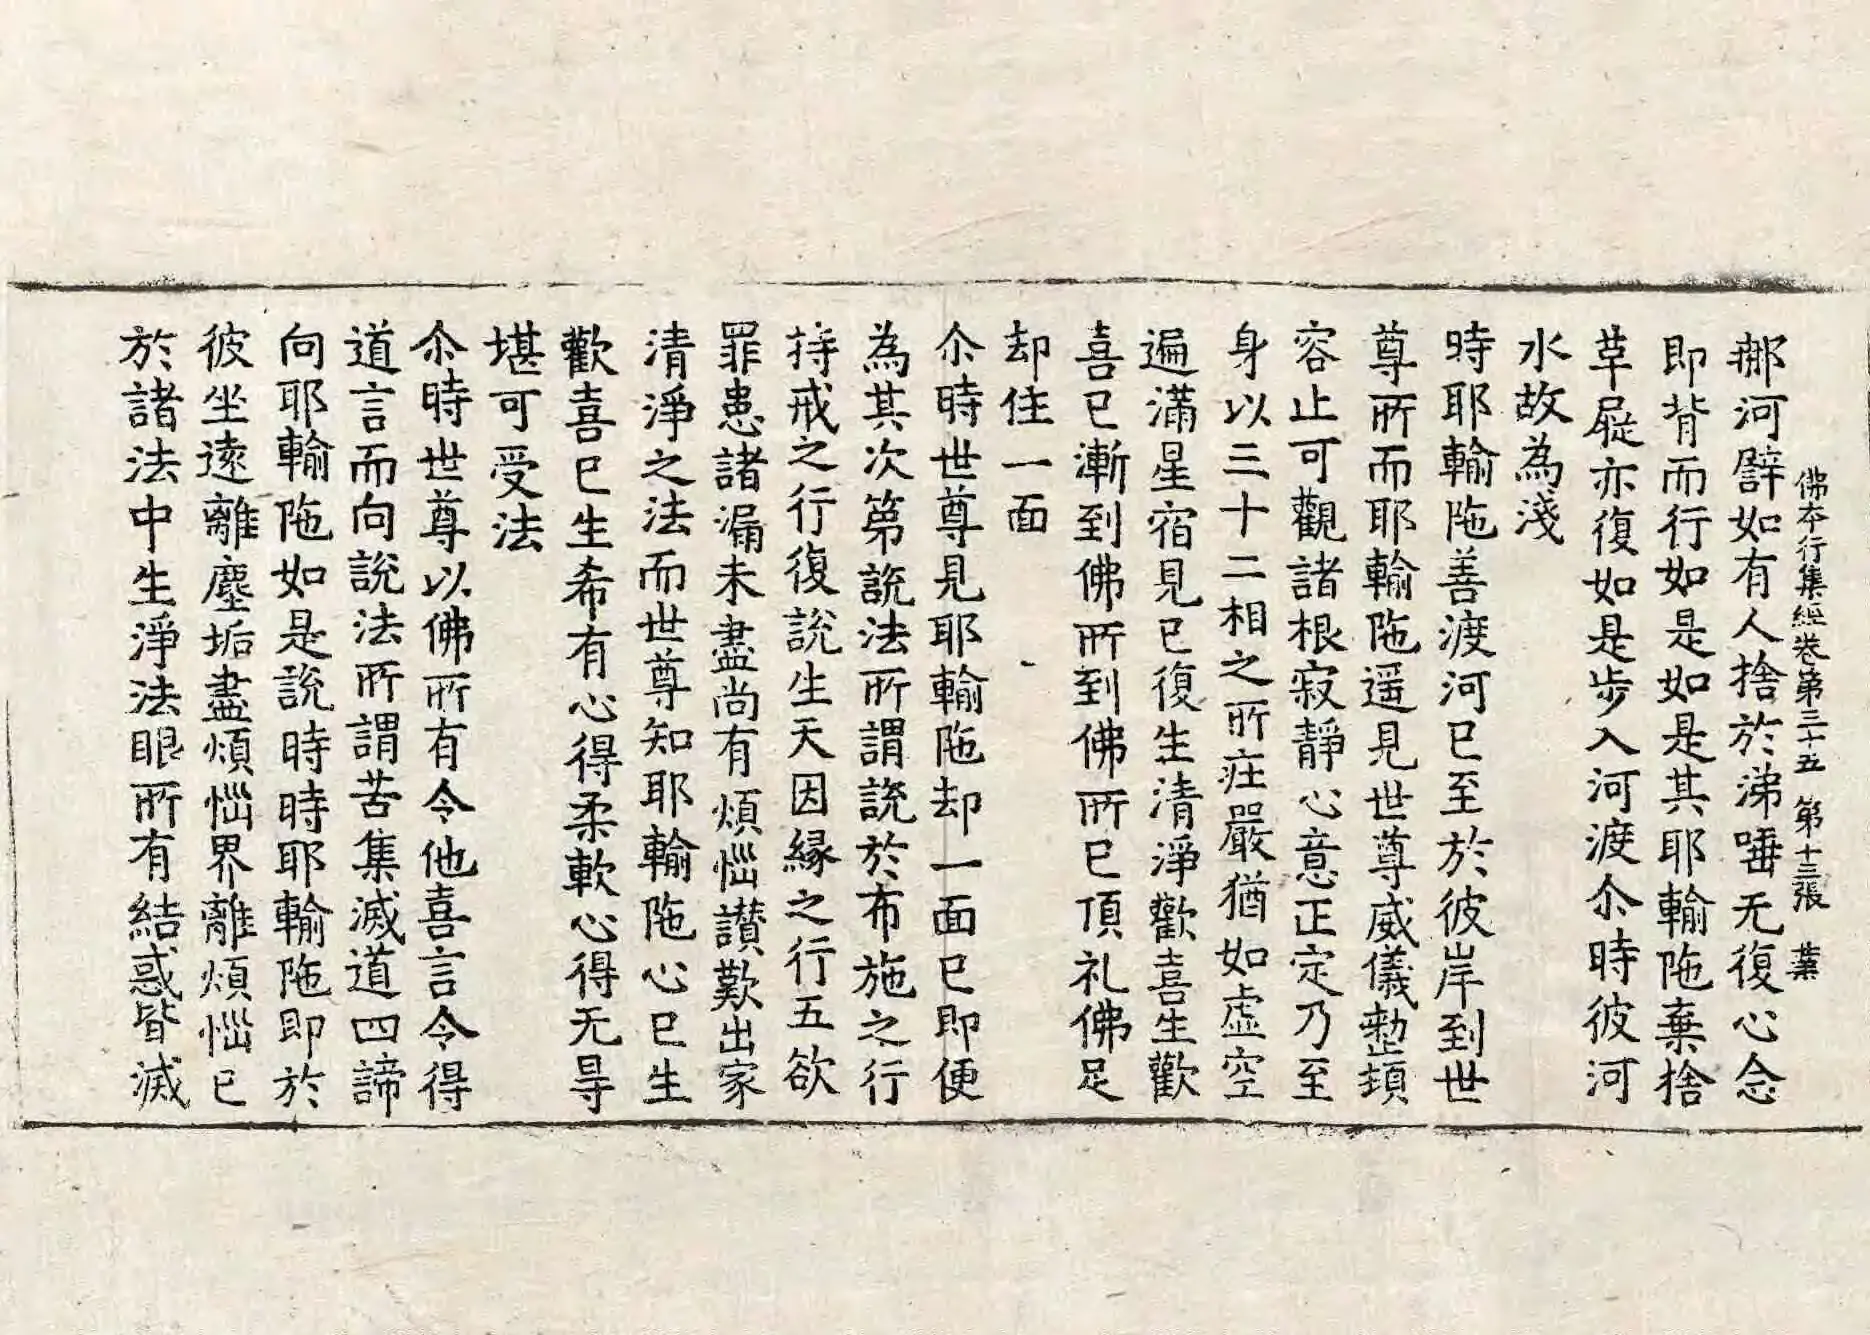 佛夲行集經卷第三十五 第十三張 業
𨚗河譬如有人捨於涕唾无復心念
即背而行如是如是其耶輸陁棄捨
草屣亦復如是步入河渡尒時彼河
水故為淺
時耶輸陁善渡河已至於彼岸到世
尊所而耶輸陁遥見世尊威儀整頓
容止可觀諸根寂靜心意正定乃至
身以三十二相之所莊嚴猶如虛空
遍滿星宿見已復生清淨歡喜生歡
喜已漸到佛所到佛所已頂礼佛足
却住一面
尒時世尊見耶輸陁却一面已即便
為其次第說法所謂說於布施之行
持戒之行復說生天因縁之行五欲
罪患諸漏未盡尚有煩惱讃歎出家
清淨之法而世尊知耶輸陁心已生
歡喜已生希有心得柔軟心得无㝵
堪可受法
尒時世尊以佛所有令他喜言令得
道言而向說法所謂苦集滅道四諦
向耶輸陁如是說時時耶輸陁即於
彼坐遠離塵垢盡煩惱界離煩惱已
於諸法中生淨法眼所有結惑皆滅